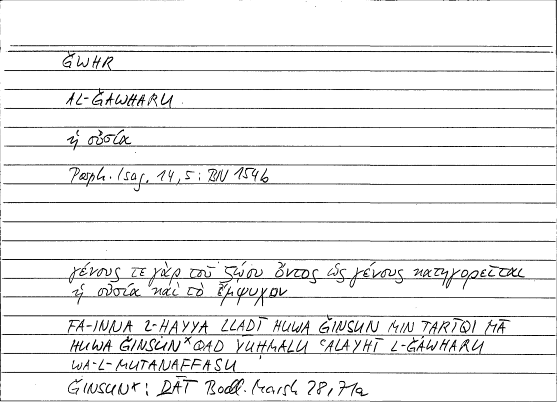 ǦWHR
AL-ǦAWHARU
ἡ οὐσία
Porph. Isag. 14,5: BN 154b
γένους τε γὰρ τοῦ ζῴου ὄντος ὡς γένους κατηγορεῖται
ἡ οὐσία καὶ τὸ ἔμψυχον
FA-INNA L-HAYYA LLADĪ HUWA ǦINSUN MIN TARĪQI MĀ
HUWA ǦINSUN* QAD YUHMALU ʿALAYHĪ L-ǦAWHARU
WA-L-MUTANAFFASU
ǦINSUN*: DĀT Bodl. Marsh 28,71a